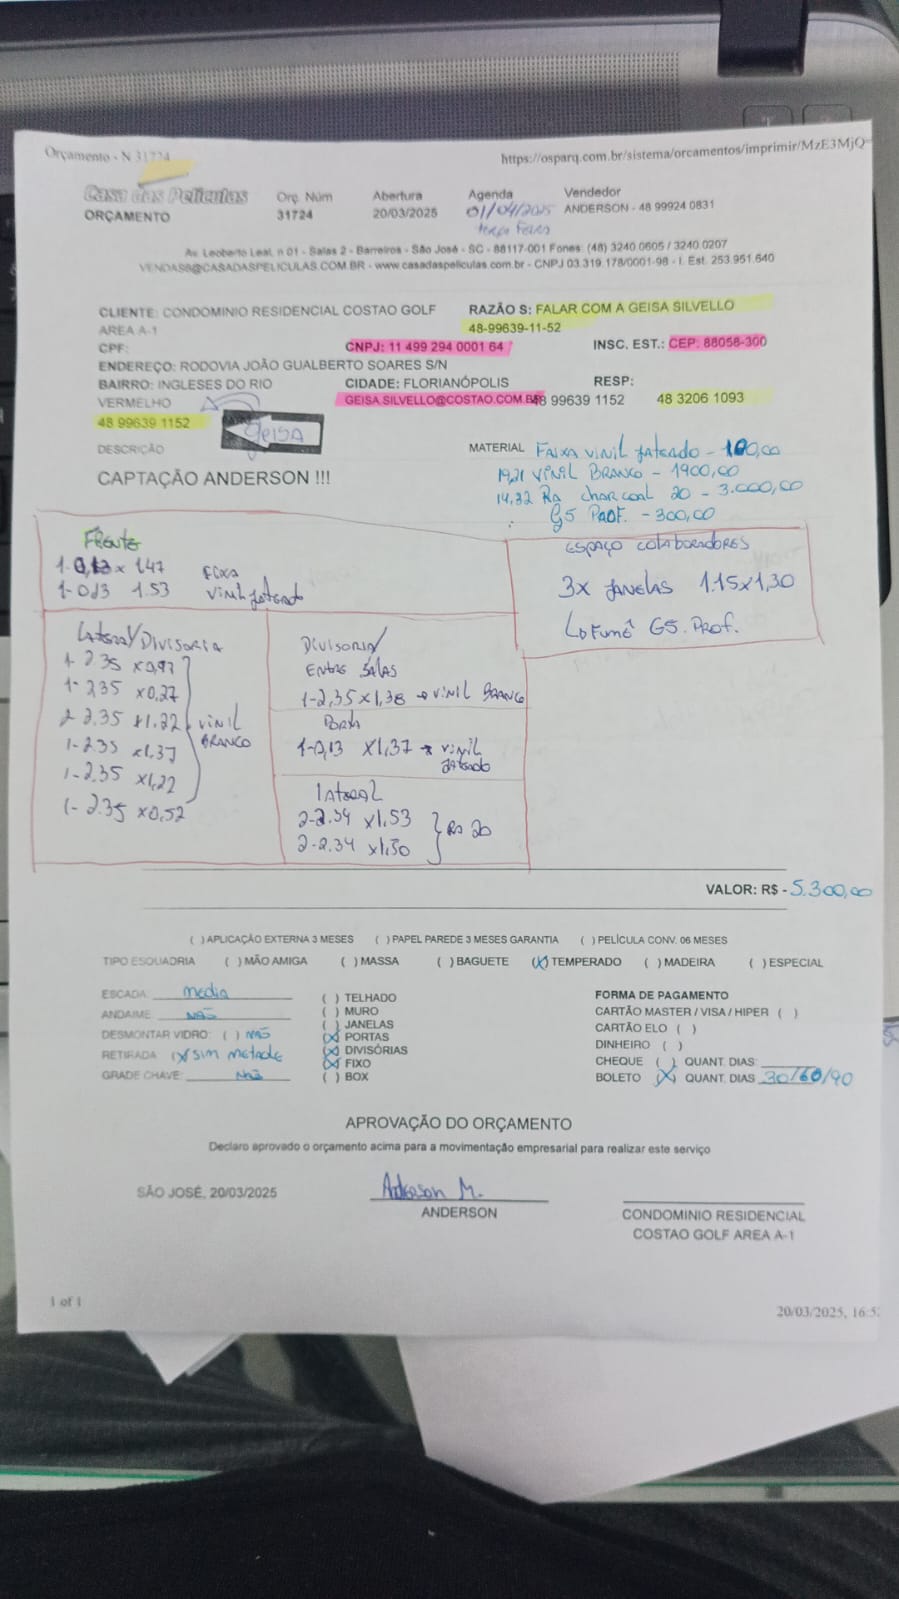 Orçamento - N 31724
https://osparq.com.br/sistema/orcamentos/imprimir/MzE3MjQ=
Casa das Películas
ORÇAMENTO
Orç. Núm
31724
Abertura
20/03/2025
Agenda
01/04/2025
terça Feira
Vendedor
ANDERSON - 48 99924 0831
Av. Leoberto Leal, n 01 - Salas 2 - Barreiros - São José - SC - 88117-001 Fones: (48) 3240.0605 / 3240.0207
VENDAS8@CASADASPELICULAS.COM.BR - www.casadaspeliculas.com.br - CNPJ 03.319.178/0001-98 - I. Est. 253.951.640
CLIENTE: CONDOMINIO RESIDENCIAL COSTAO GOLF
AREA A-1
RAZÃO S: FALAR COM A GEISA SILVELLO
48-99639-11-52
CPF:
CNPJ: 11 499 294 0001 64
INSC. EST.: CEP: 88058-300
ENDEREÇO: RODOVIA JOÃO GUALBERTO SOARES S/N
BAIRRO: INGLESES DO RIO
VERMELHO
CIDADE: FLORIANÓPOLIS
RESP:
GEISA.SILVELLO@COSTAO.COM.BR
48 99639 1152
48 3206 1093
48 99639 1152
geisa
DESCRIÇÃO
CAPTAÇÃO ANDERSON !!!
MATERIAL Faixa vinil jateado - 100,00
19,21 VINIL BRANCO - 1900,00
14.32 Rs charcoal 20 - 3.000,00
G5 PROF. - 300,00
Frente
1- 0,13 x 1.47
1- 013 1.53
Fixa
vinil jateado
ESPAÇO COLABORADORES
3x JANELAS 1.15x1,30
Fumê G5. Prof.
Lateral/Divisoria
1- 2.35 x0,97
1- 2,35 x0,27
2- 2.35 x1.22
1- 2.35 x1,37
1- 2.35 x1,22
1- 2.35 x0,52
vinil
BRANCO
DIVISORIA/
ENTRE SALAS
1-2,35x1,38 → vinil BRANCO
Porta
1-0,13 x1,37 → vinil
jateado
lateral
2-2.34 x1.53
2-2.34 x1.50
Rs 20
VALOR: R$ - 5.300,00
( ) APLICAÇÃO EXTERNA 3 MESES ( ) PAPEL PAREDE 3 MESES GARANTIA ( ) PELÍCULA CONV. 06 MESES
TIPO ESQUADRIA ( ) MÃO AMIGA ( ) MASSA ( ) BAGUETE (X) TEMPERADO ( ) MADEIRA ( ) ESPECIAL
ESCADA: media
ANDAIME: NÃO
DESMONTAR VIDRO: ( ) NÃO
RETIRADA (X) sim metade
GRADE CHAVE: Não
( ) TELHADO
( ) MURO
( ) JANELAS
(X) PORTAS
(X) DIVISÓRIAS
(X) FIXO
( ) BOX
FORMA DE PAGAMENTO
CARTÃO MASTER / VISA / HIPER ( )
CARTÃO ELO ( )
DINHEIRO ( )
CHEQUE ( ) QUANT. DIAS:
BOLETO (X) QUANT. DIAS 30/60/90
APROVAÇÃO DO ORÇAMENTO
Declaro aprovado o orçamento acima para a movimentação empresarial para realizar este serviço
SÃO JOSÉ, 20/03/2025
Anderson M.
ANDERSON
CONDOMINIO RESIDENCIAL
COSTAO GOLF AREA A-1
1 of 1
20/03/2025, 16:5